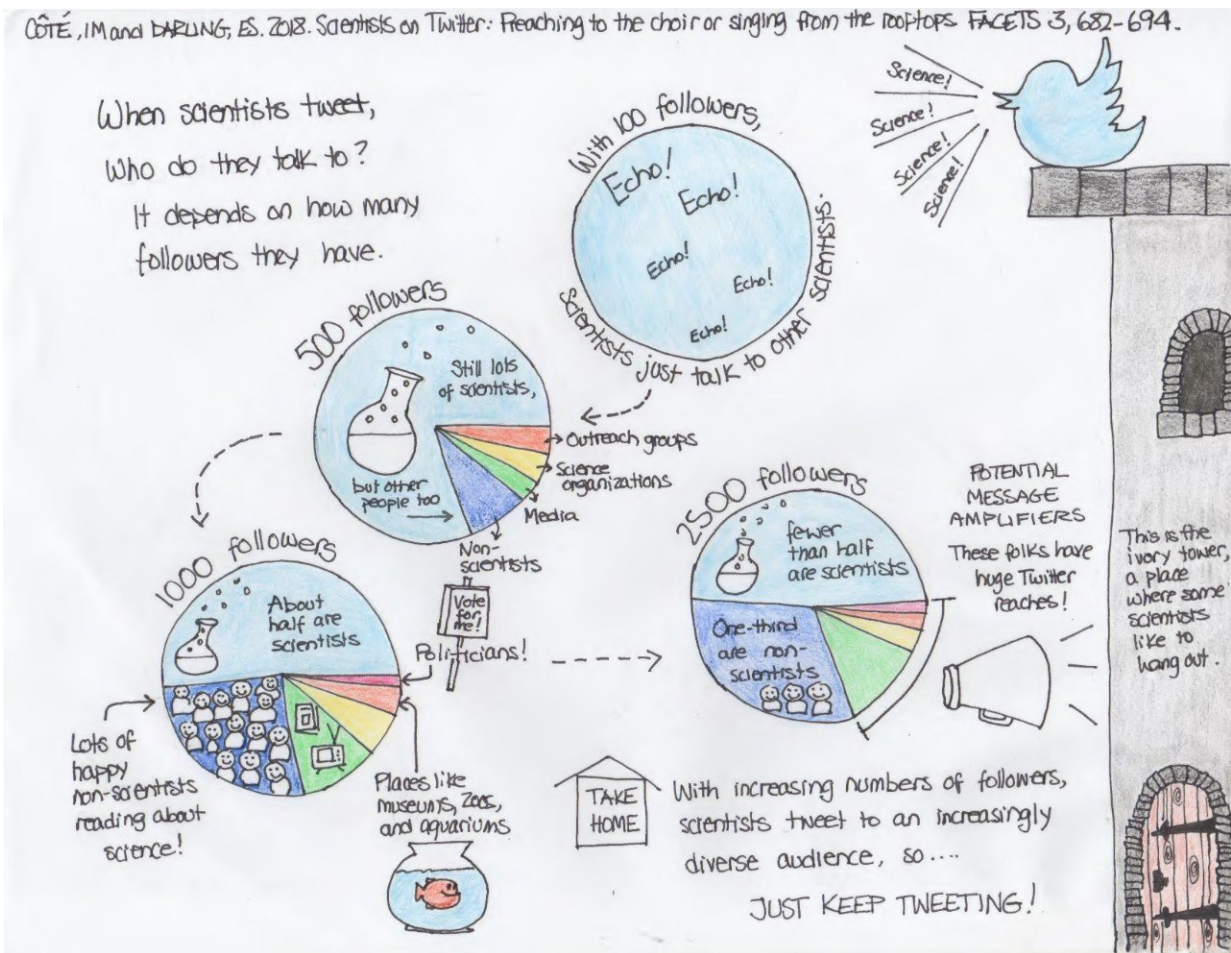 CÔTÉ, IM and DARLING, ES. 2018. Scientists on Twitter: Preaching to the choir or singing from the rooftops. FACETS 3, 682-694.
When scientists tweet,
Who do they talk to?
It depends on how many
followers they have.
Science!
Science!
Science!
Science!
With 100 followers,
Scientists just talk to other scientists.
Echo!
Echo!
Echo!
Echo!
Echo!
500 followers
Still lots
of scientists,
but other
people too
Outreach groups
Science
organizations
Media
Non-
scientists
1000 followers
About
half are
scientists
Vote
for
me!
Politicians!
Lots of
happy
non-scientists
reading about
science!
Places like
museums, zoos,
and aquariums
2500 followers
fewer
than half
are scientists
One-third
are non-
scientists
POTENTIAL
MESSAGE
AMPLIFIERS
These folks have
huge Twitter
reaches!
This is the
ivory tower,
a place
where some
scientists
like to
hang out.
TAKE
HOME
With increasing numbers of followers,
scientists tweet to an increasingly
diverse audience, so....
JUST KEEP TWEETING!